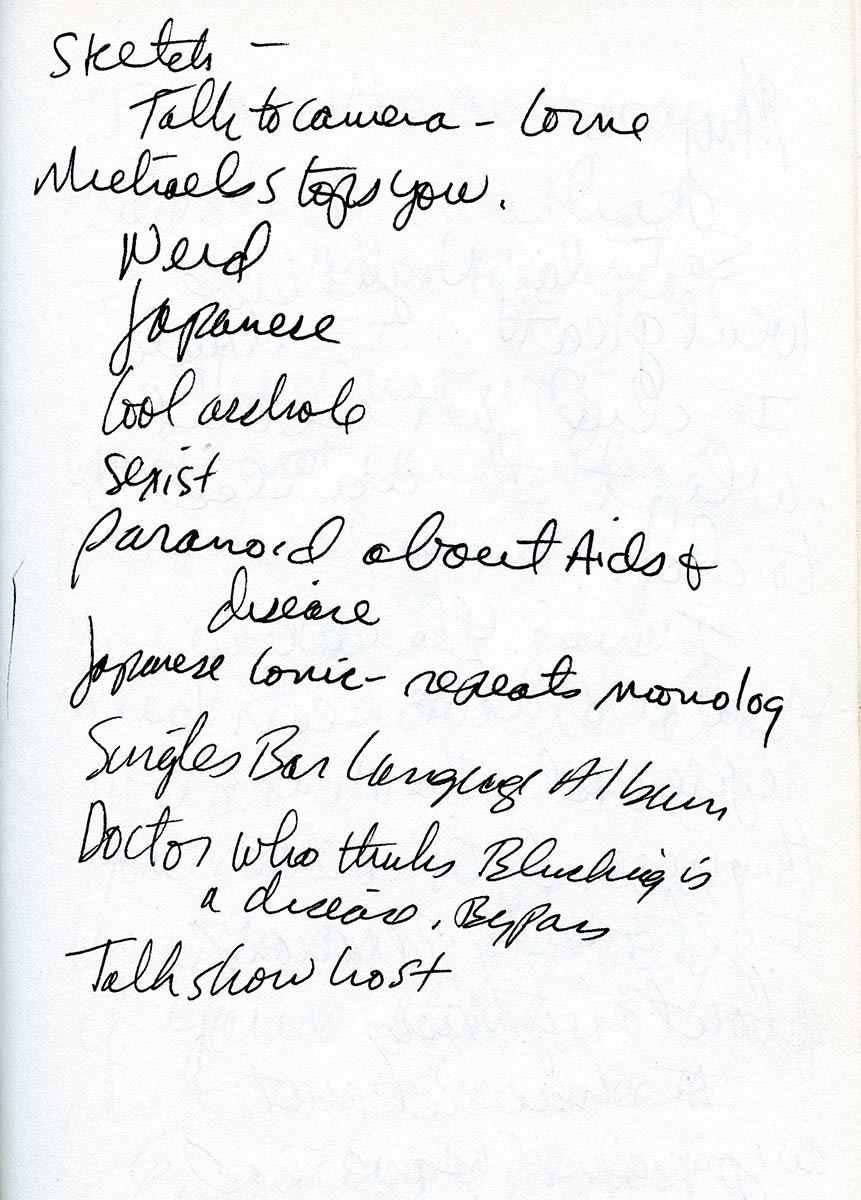 Sketch –
Talk to camera – Lorne
Michaels stops you.
Nerd
Japanese
Cool asshole
sexist
Paranoid about Aids &
disease
Japanese Comic – repeats monolog
Singles Bar Language Album
Doctor who thinks Blushing is
a disease. Bypass
Talk show host